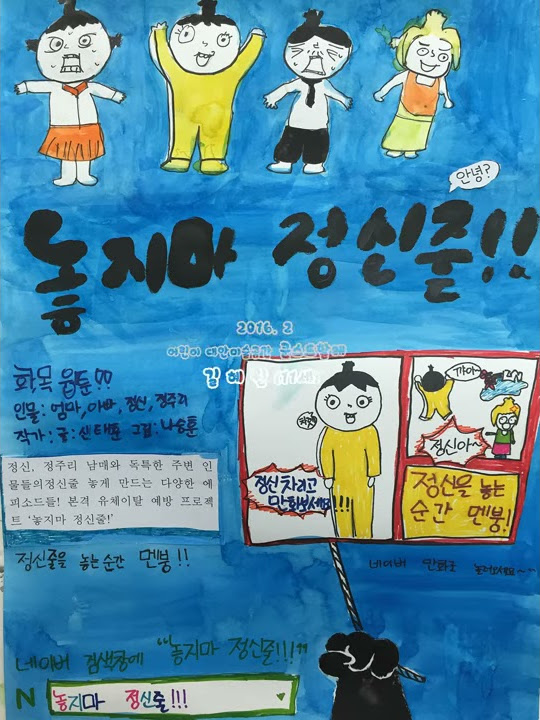 안녕?
놓지마 정신줄!!
2016. 2
김혜진 (11세)
화목 웹툰!!
인물: 엄마, 아빠, 정신, 정주리
작가: 글: 신태훈 그림: 나승훈
정신, 정주리 남매와 독특한 주변 인
물들의정신줄 놓게 만드는 다양한 에
피소드들! 본격 유체이탈 예방 프로젝
트 '놓지마 정신줄!'
정신줄을 놓는순간 멘붕!!
정신 차리고
만화보세요!!!
까아
정신아~
정신을 놓는
순간 멘붕!
네이버 만화로
네이버 검색창에 "놓지마 정신줄!!!"
N 놓지마 정신줄!!!